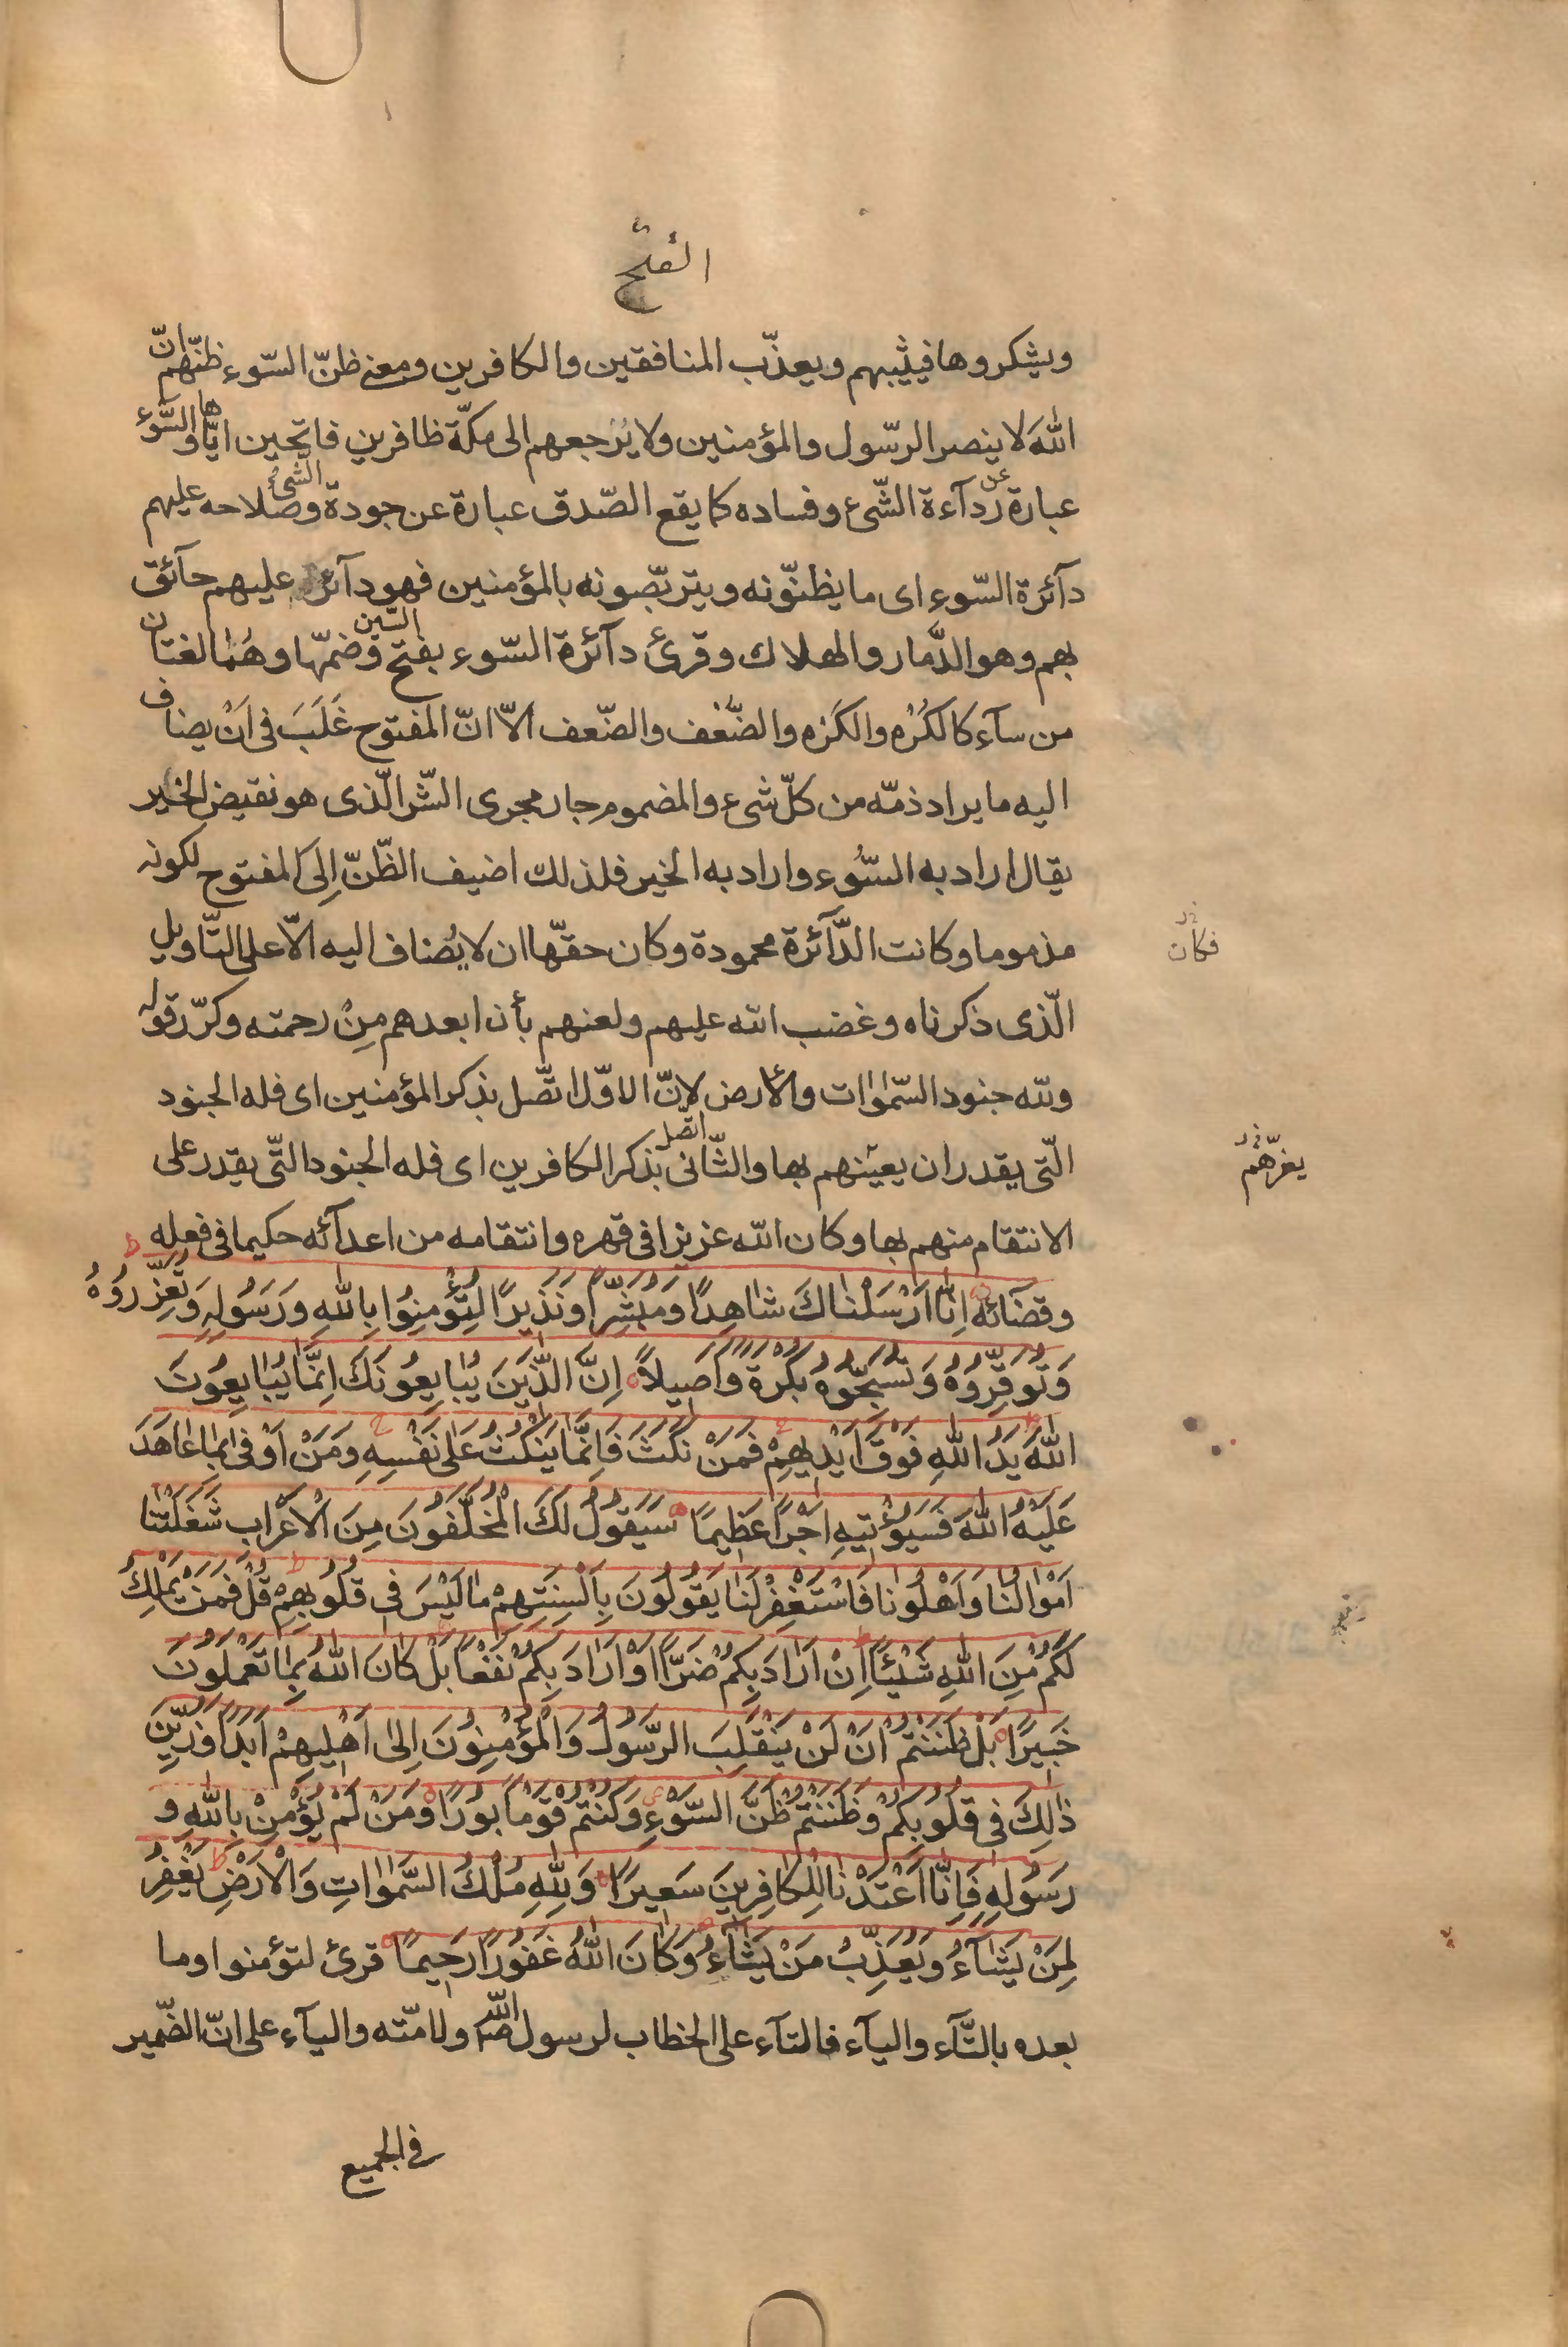 الفتح
ويشكروها فيثيبهم ويعذّب المنافقين والكافرين ومعنى ظنّ السّوء ظنّهم انّ
اللهَ لا ينصر الرّسول والمؤمنين ولا يُرجعهم الى مكّة ظافرين فاتحين ايّاها والسَّوء
عبارة عن ردآءة الشّىء وفساده كما يقع الصّدق عبارة عن جودة الشىء وصلاحه عليهم
دآئرة السّوء اى ما يظنّونه ويتربّصونه بالمؤمنين فهو دآئر عليهم حآئق
بهم وهو الدَّمار والهلاك وقرئ دآئرة السّوء بفتح السّين وضمّها وهُما لغتان
من سآء كالكُرْه والكَرْه والضُّعْف والضّعف الاّ انّ المفتوح غَلَبَ فى اَنْ يضاف
اليه ما يراد ذمّه من كلّ شىء والمضموم جار مجرى الشّر الّذى هو نقيض الخير
يقال اراد به السُّوء واراد به الخير فلذلك اضيف الظّنّ اِلى المفتوح لكونه
مذموما وكانت الدَّآئرة محمودة وكان حقّها ان لا يُضاف اليه الاّ على التّاويل
فكان
الّذى ذكرناه وغضب الله عليهم ولعنهم بأن ابعدهم مِنْ رحمته وكرّر قوله
ولله جنود السّمٰوات والأرض لانّ الاوّل اتّصل بذكر المؤمنين اى فله الجنود
الّتى يقدر ان يعينهم بها والثّانى اتّصل بذكر الكافرين اى فله الجنود الّتى يقدر على
يغرّهم
الانتقام منهم بها وكان الله عزيزا فى قهره وانتقامه من اعدآئه حكيما فى فعله
وقضآئه اِنّٰا اَرْسَلْنٰاكَ شٰاهِدًا وَمُبَشِّرًا وَنَذِيرًا لِتُؤْمِنُوا بِاللهِ وَرَسُولِهِ وَتُعَزِّرُوهُ
وَتُوَقِّرُوهُ وَتُسَبِّحُوهُ بُكْرَةً وَاَصِيلاً اِنَّ الَّذِينَ يُبٰايِعُونَكَ اِنَّمٰا يُبٰايِعُونَ
اللهَ يَدُ اللهِ فَوْقَ اَيْدِيهِمْ فَمَنْ نَكَثَ فَاِنَّمٰا يَنْكُثُ عَلىٰ نَفْسِهِ وَمَنْ اَوْفىٰ بِمٰا عٰاهَدَ
عَلَيْهُ اللهَ فَسَيُؤْتِيهِ اَجْرًا عَظِيمًا سَيَقُولُ لَكَ الْمُخَلَّفُونَ مِنَ الْاَعْرٰابِ شَغَلَتْنٰا
اَمْوٰالُنٰا وَاَهْلُونٰا فَاسْتَغْفِرْ لَنٰا يَقُولُونَ بِاَلْسِنَتِهِمْ مٰا لَيْسَ فِى قُلُوبِهِمْ قُلْ فَمَنْ يَمْلِكُ
لَكُمْ مِنَ اللهِ شَيْئًا اِنْ اَرٰادَ بِكُمْ ضَرًّا اَوْ اَرٰادَ بِكُمْ نَفْعًا بَلْ كٰانَ اللهُ بِمٰا تَعْمَلُونَ
خَبِيرًا بَلْ ظَنَنْتُمْ اَنْ لَنْ يَنْقَلِبَ الرَّسُولُ وَالْمُؤْمِنُونَ اِلىٰ اَهْلِيهِمْ اَبَدًا وَزُيِّنَ
ذٰلِكَ فِى قُلُوبِكُمْ وَظَنَنْتُمْ ظَنَّ السَّوْءِ وَكُنْتُمْ قَوْمًا بُورًا وَمَنْ لَمْ يُؤْمِنْ بِاللهِ وَ
رَسُولِهِ فَاِنّٰا اَعْتَدْنٰا لِلْكٰافِرِينَ سَعِيرًا وَلِلّٰهِ مُلْكُ السَّمٰوٰاتِ وَالْاَرْضِ يَغْفِرُ
لِمَنْ يَشٰآءُ وَيُعَذِّبُ مَنْ يَشٰآءُ وَكٰانَ اللهُ غَفُورًا رَحِيمًا قرئ لتؤمنوا وما
بعده بالتّآء واليآء فالتآء على الخطاب لرسول الله ص ولامّته واليآء على انّ الضّمير
فى الجميع